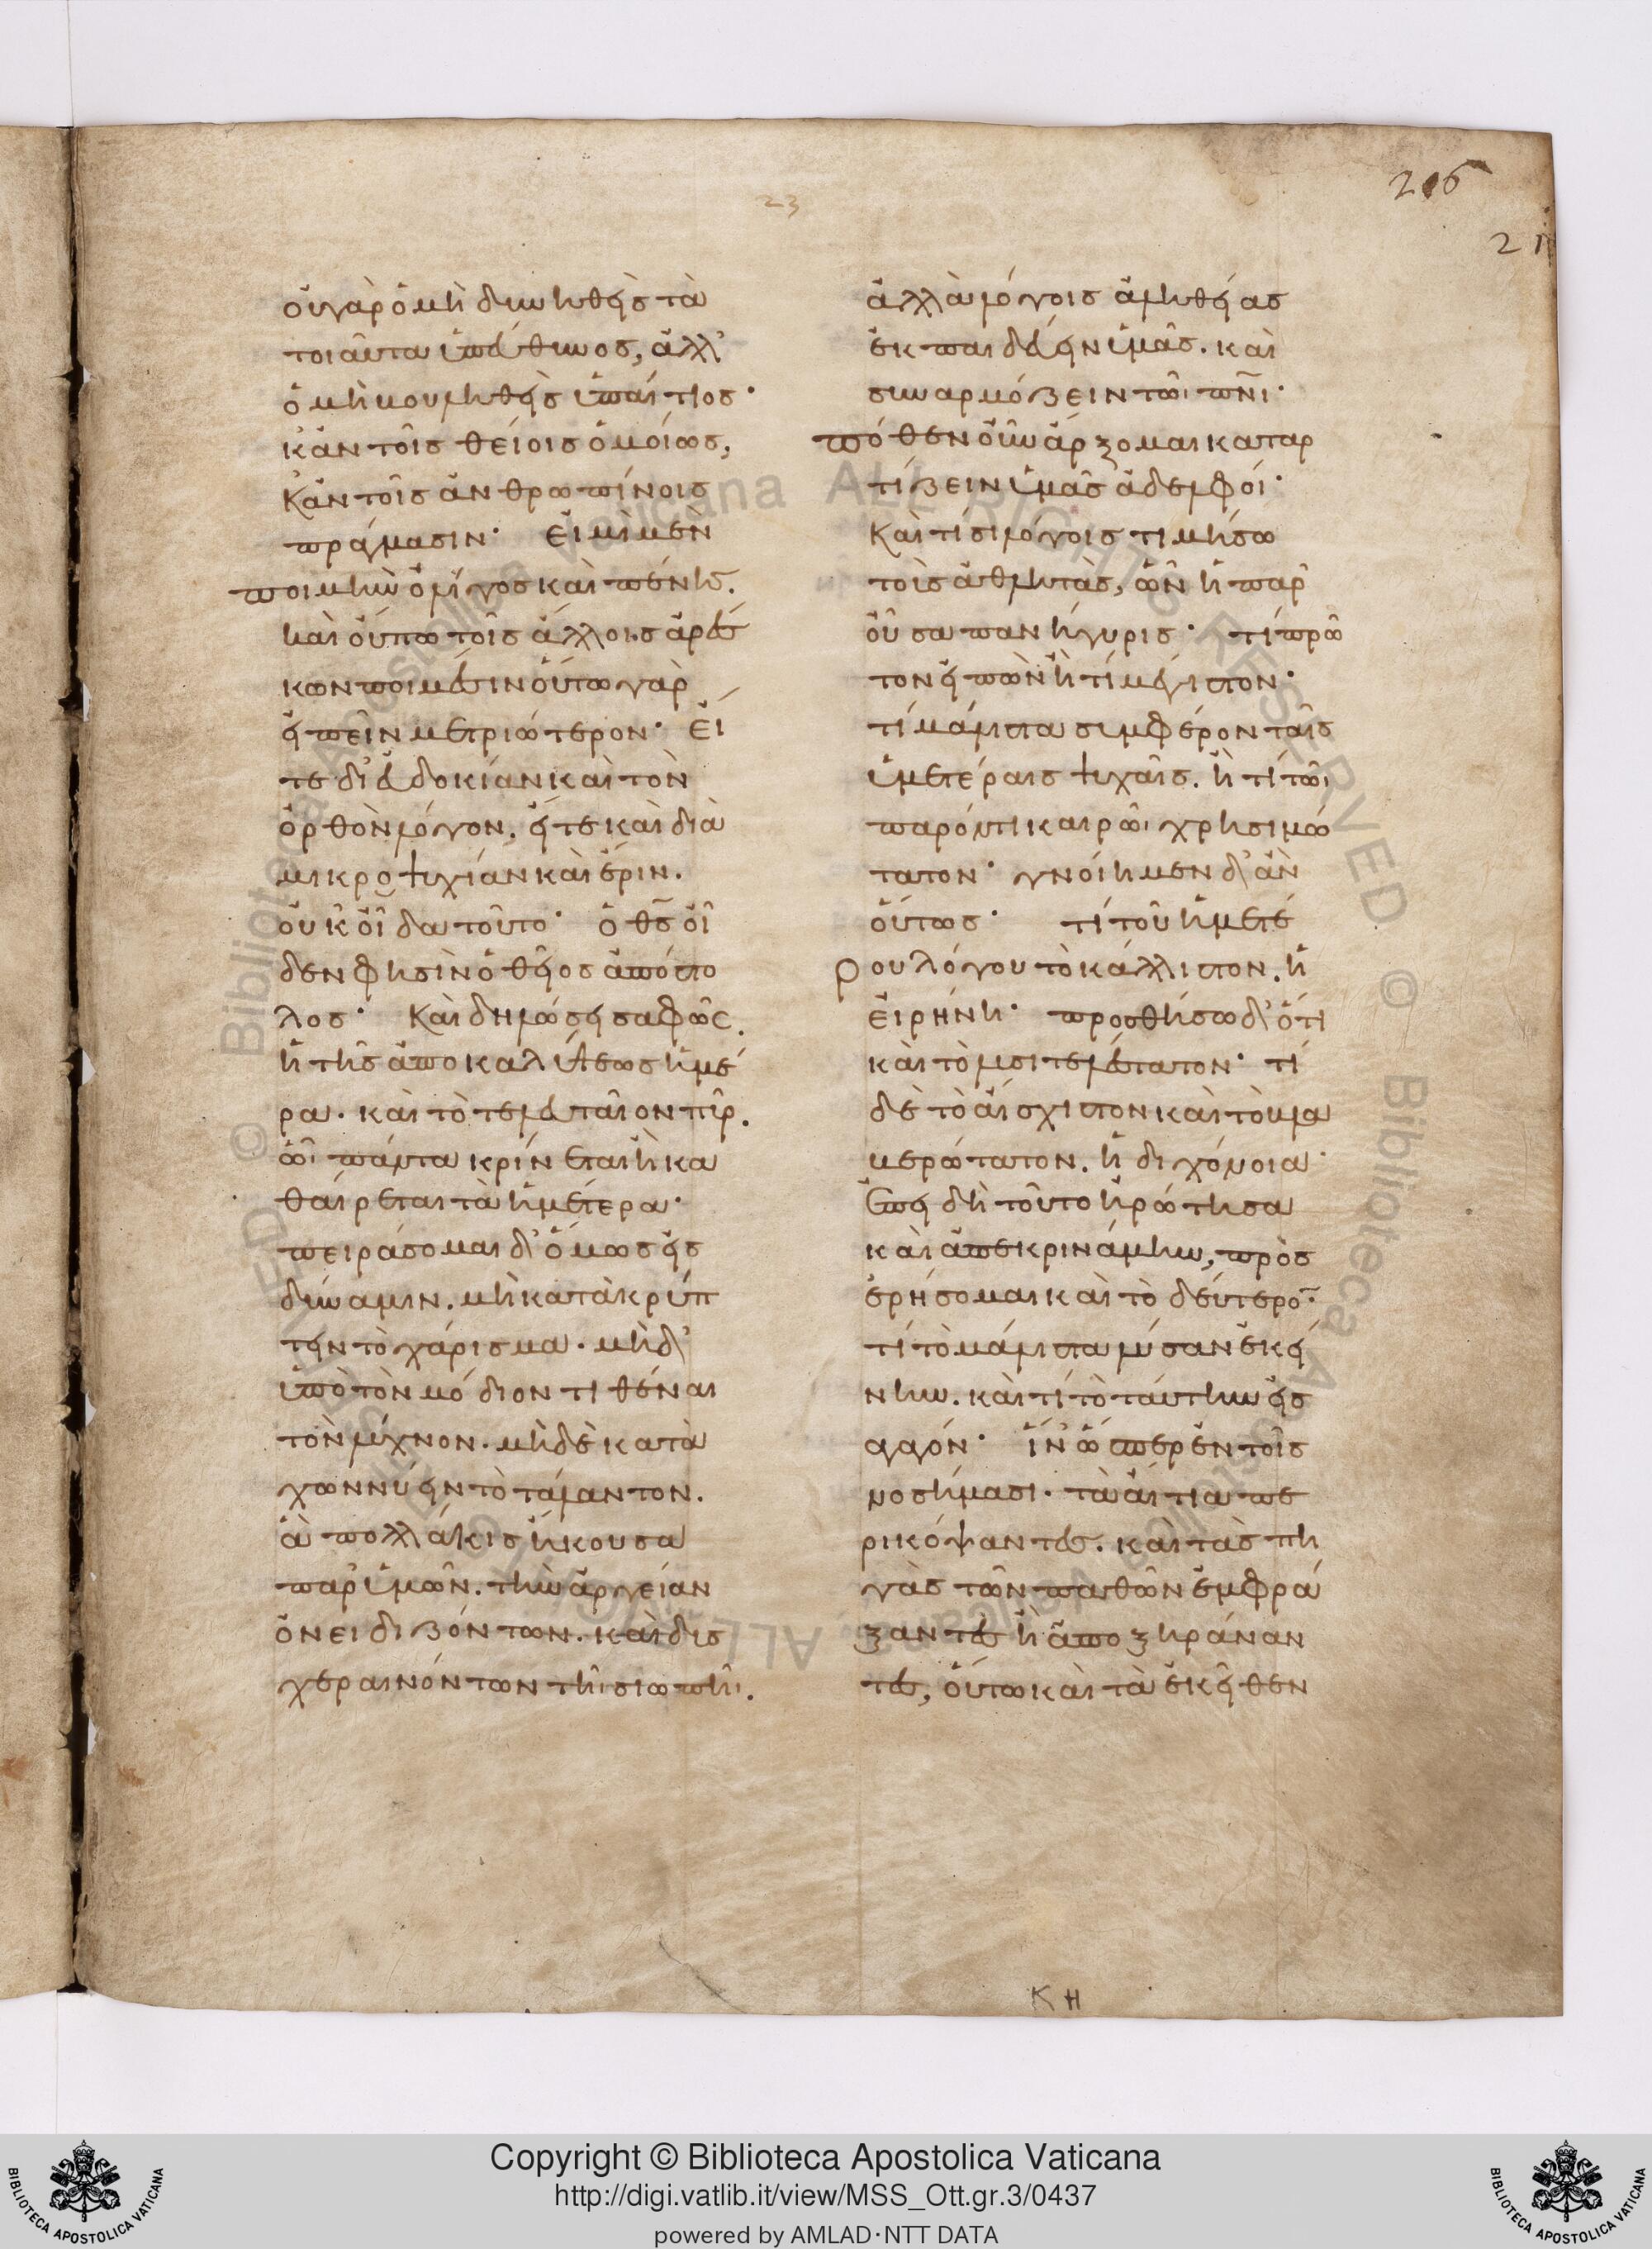 216
23
21
οὐ γὰρ ὁ μὴ δυνηθεὶς τὰ
τοιαῦτα ὑπεύθυνος, ἀλλ'
ὁ μὴ βουληθεὶς ὑπαίτιος·
κἂν τοῖς θείοις ὁμοίως,
Κἂν τοῖς ἀνθρωπίνοις
πράγμασιν· Ἐγὼ μὲν
ποιμὴν ὀλίγος καὶ πένης.
καὶ οὔπω τοῖς ἄλλοις ἀρέσ
κων ποιμέσιν οὕτω γὰρ
εἰπεῖν μετριώτερον· Εἴ
τε δι' εὐδοκίαν καὶ τὸν
ὀρθὸν λόγον, εἴτε καὶ διὰ
μικροψυχίαν καὶ ἔριν.
οὐκ οἶδα τοῦτο· ὁ θς οἶ
δεν φησὶν ὁ θεῖος ἀπόστο
λος· Καὶ δηλώσει σαφῶς.
ἡ τῆς ἀποκαλύψεως ἡμέ
ρα. καὶ τὸ τελευταῖον πῦρ.
ᾧ πάντα κρίνεται ἢ κα
θαίρεται τὰ ἡμέτερα·
πειράσομαι δ' ὅμως εἰς
δύναμιν. μὴ κατακρύπ
τειν τὸ χάρισμα. μὴδ'
ὑπὸ τὸν μόδιον τιθέναι
τὸν λύχνον. μὴδὲ κατα
χωννύειν τὸ τάλαντον.
ἃ πολλάκις ἤκουσα
παρ' ὑμῶν. τὴν ἀργείαν
ὀνειδιζόντων. καὶ δυσ
χεραινόντων τῆι σιωπῆι.
ἀλλὰ λόγοις ἀληθείας
ἐκπαιδεύειν ὑμᾶς. καὶ
συναρμόζειν τῶι πνι·
πόθεν οὖν ἄρξομαι καταρ
τίζειν ὑμᾶς ἀδελφοί·
Καὶ τίσι λόγοις τιμήσω
τοὺς ἀθλητὰς, ὧν ἡ παρ
οῦσα πανήγυρις· τί πρῶ
τον εἰπὼν ἢ τί μέγιστον·
τί μάλιστα συμφέρον ταῖς
ὑμετέραις ψυχαῖς. ἢ τί τῶι
παρόντι καιρῶι χρησιμώ
τατον· γνοίημεν δ' ἂν
οὕτως· τί τοῦ ἡμετέ
ρου λόγου τὸ κάλλιστον. ἡ
εἰρήνη· προσθήσω δ' ὅτι
καὶ τὸ λυσιτελέστατον· τί
δὲ τὸ αἴσχιστον καὶ τὸ βλα
βερώτατον. ἡ διχόνοια·
Ἐπεὶ δὴ τοῦτο ἠρώτησα
καὶ ἀπεκρινάμην, προσ
ερήσομαι καὶ τὸ δεύτερο·
τί τὸ μάλιστα λύσαν ἐκεί
νην. καὶ τί τὸ ταύτην εἰσ
αγαγόν· ἵν' ὥσπερ ἐν τοῖς
νοσήμασι. τὰ αἴτια πε
ρικόψαντες. καὶ τὰς πη
γὰς τῶν παθῶν ἐμφρά
ξαντες ἢ ἀποξηράναν
τες, οὕτω καὶ τὰ ἐκεῖθεν
ΚΗ
Copyright © Biblioteca Apostolica Vaticana
http://digi.vatlib.it/view/MSS_Ott.gr.3/0437
powered by AMLAD·NTT DATA